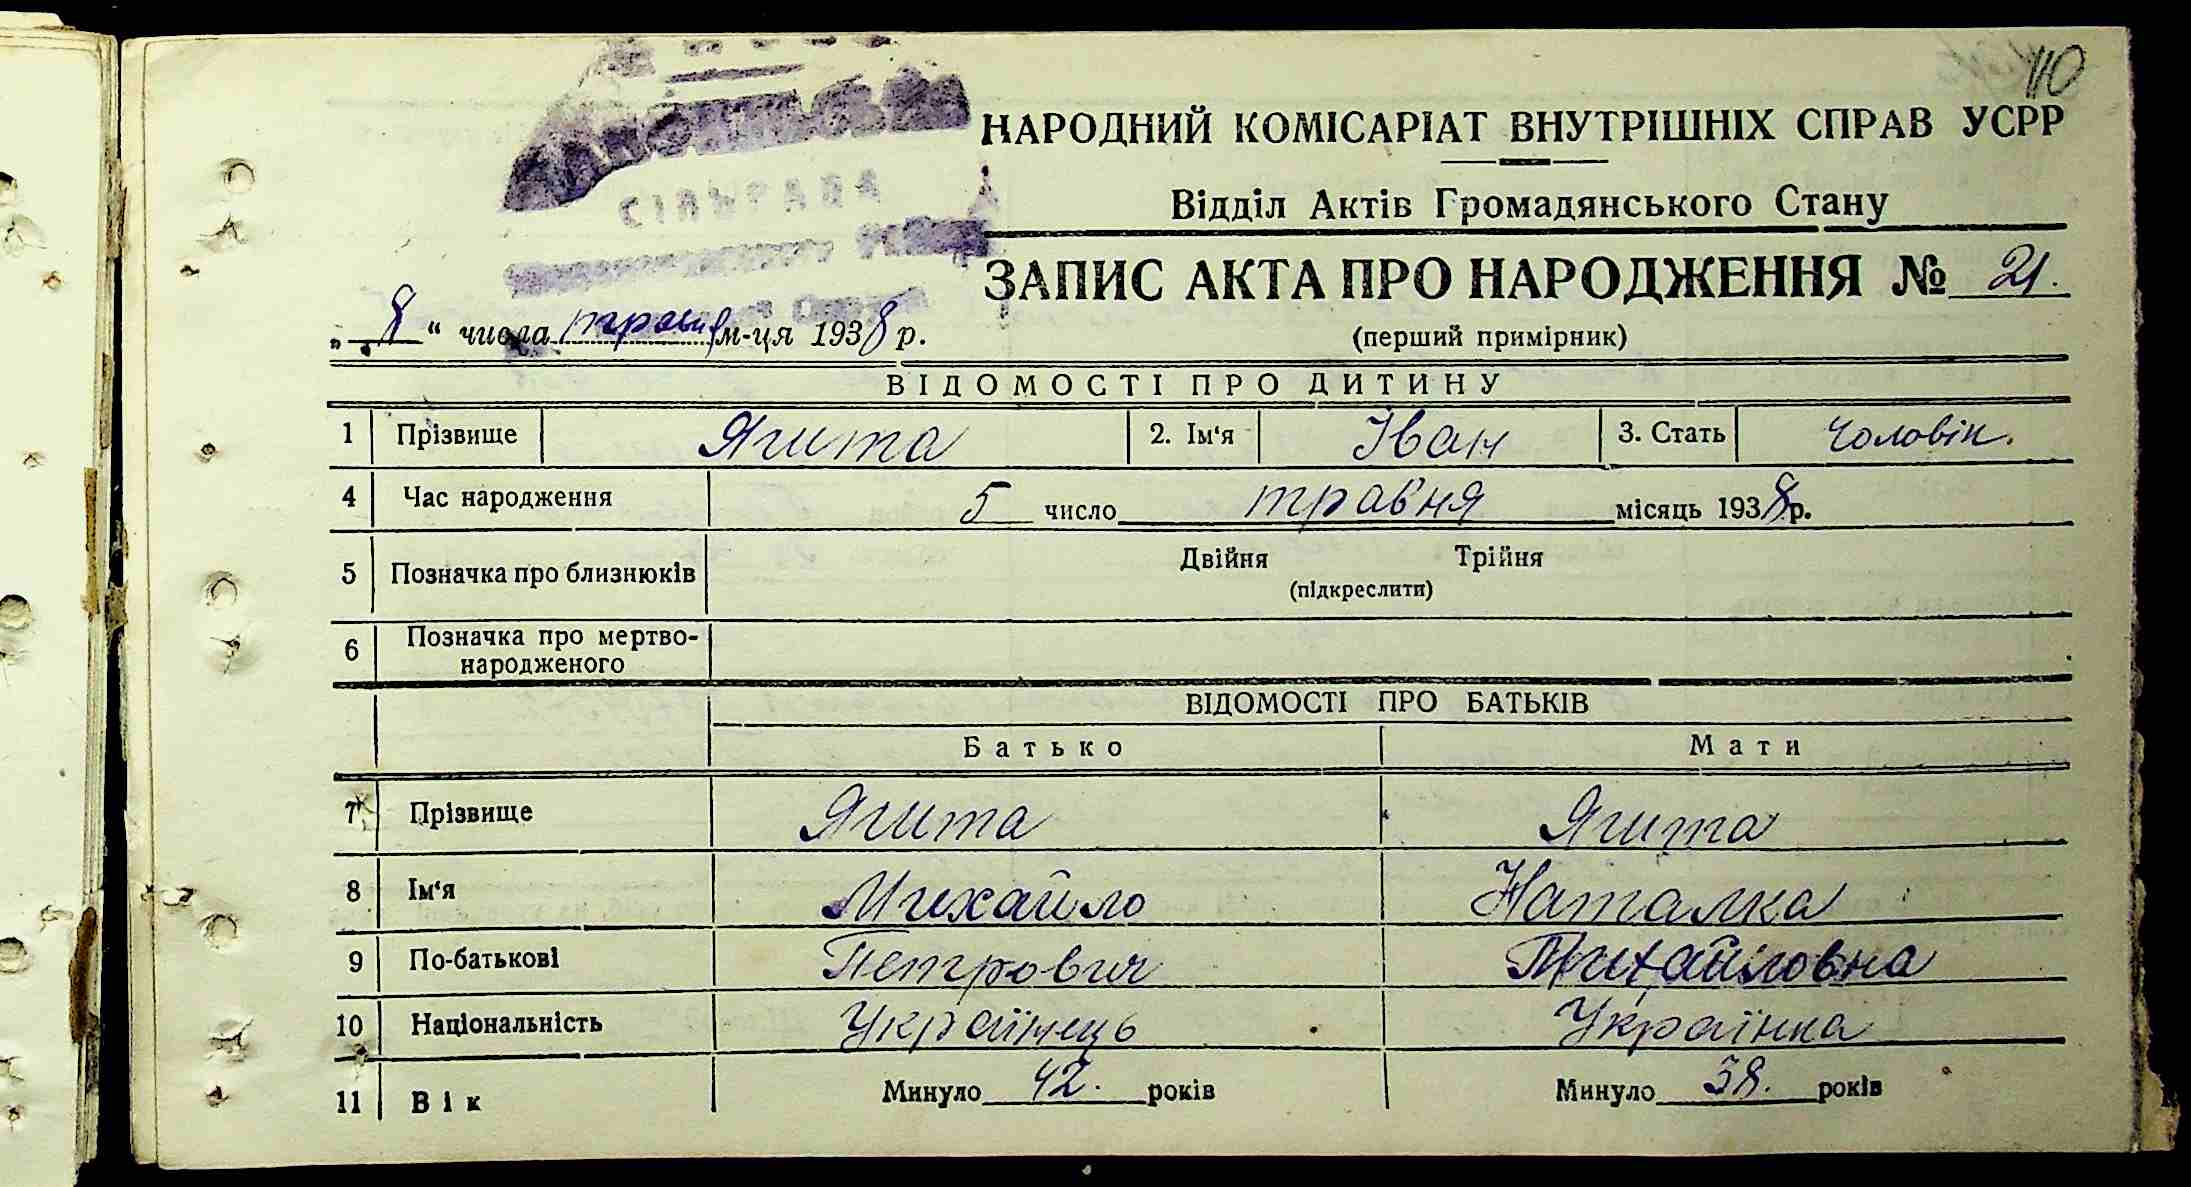 110
НАРОДНИЙ КОМІСАРІАТ ВНУТРІШНІХ СПРАВ УСРР
СІЛЬРАДА
Відділ Актів Громадянського Стану
ЗАПИС АКТА ПРО НАРОДЖЕННЯ № 21.
„8“ числа травня м-ця 1938 р.
(перший примірник)
ВІДОМОСТІ ПРО ДИТИНУ
1 Прізвище Ягита 2. Ім‘я Іван 3. Стать чоловік.
4 Час народження 5 число травня місяць 1938 р.
5 Позначка про близнюків Двійня Трійня
(підкреслити)
6 Позначка про мертво-
народженого
ВІДОМОСТІ ПРО БАТЬКІВ
Батько Мати
7 Прізвище Ягита Ягита
8 Ім‘я Михайло Наталка
9 По-батькові Петрович Михайловна
10 Національність Українець Українка
11 Вік Минуло 42. років Минуло 38. років